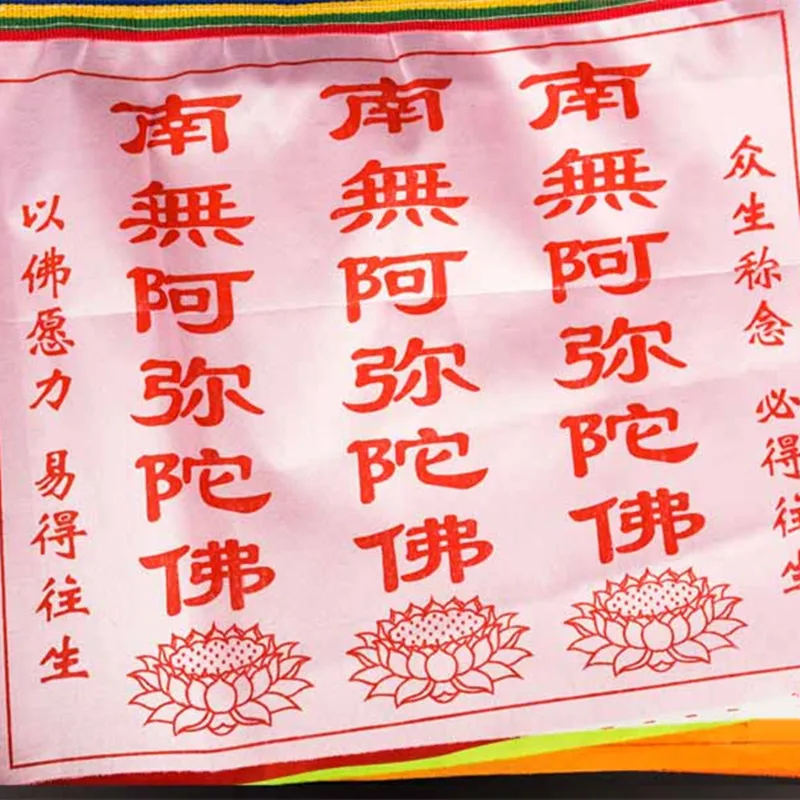 众生称念 必得往生
南無阿弥陀佛
南無阿弥陀佛
南無阿弥陀佛
以佛愿力 易得往生